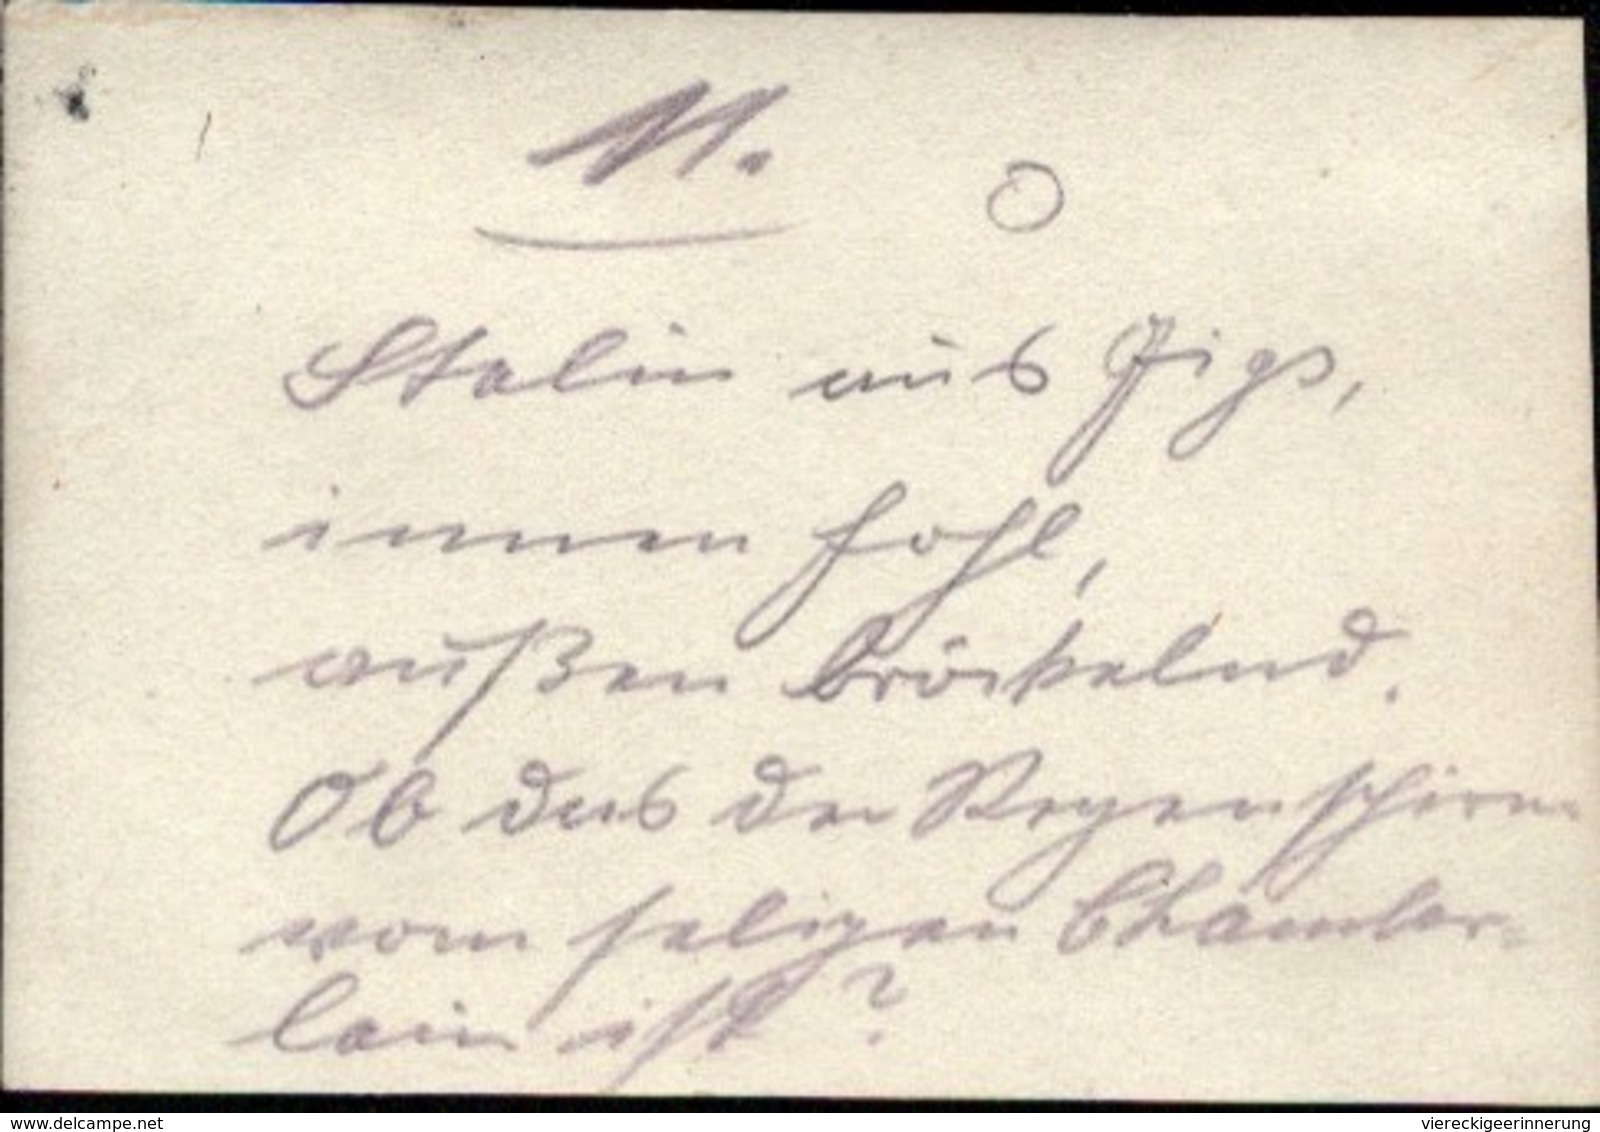 11.
Stalin aus Gips,
innen hohl,
außen bröckelnd.
Ob das der Regenschirm
vom seligen Chamber-
lain ist?
www.delcampe.net
viereckigeerinnerung